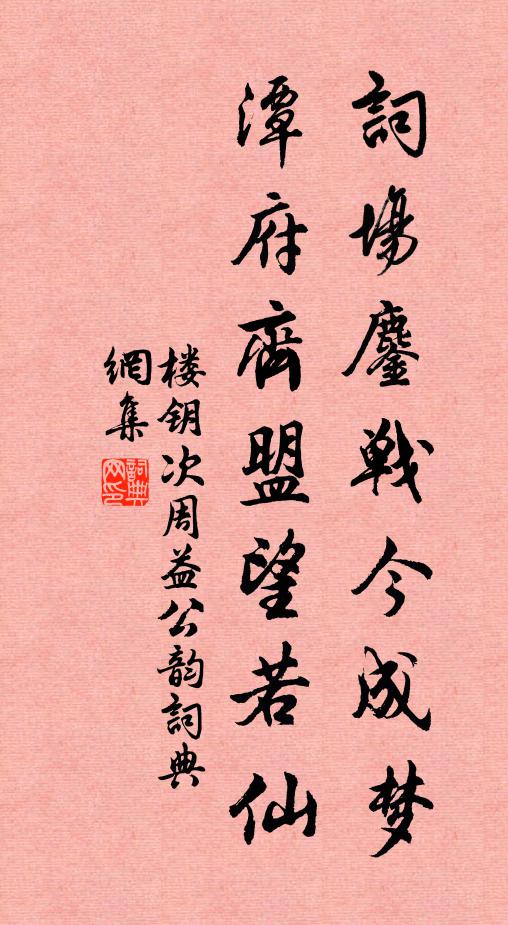 詞場鏖戰今成梦
潭府齊盟望若仙
楼钥次周益公韵詞典
網集
詞典网印